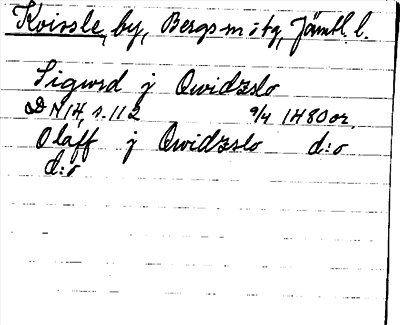 Kvissle, by, Bergs m:stg, Jämtl. l.
Sigurd j Qwidzslo
DN 14, s. 112 9/4 1480 or.
Olaff j Qwidzslo d:o
d:o